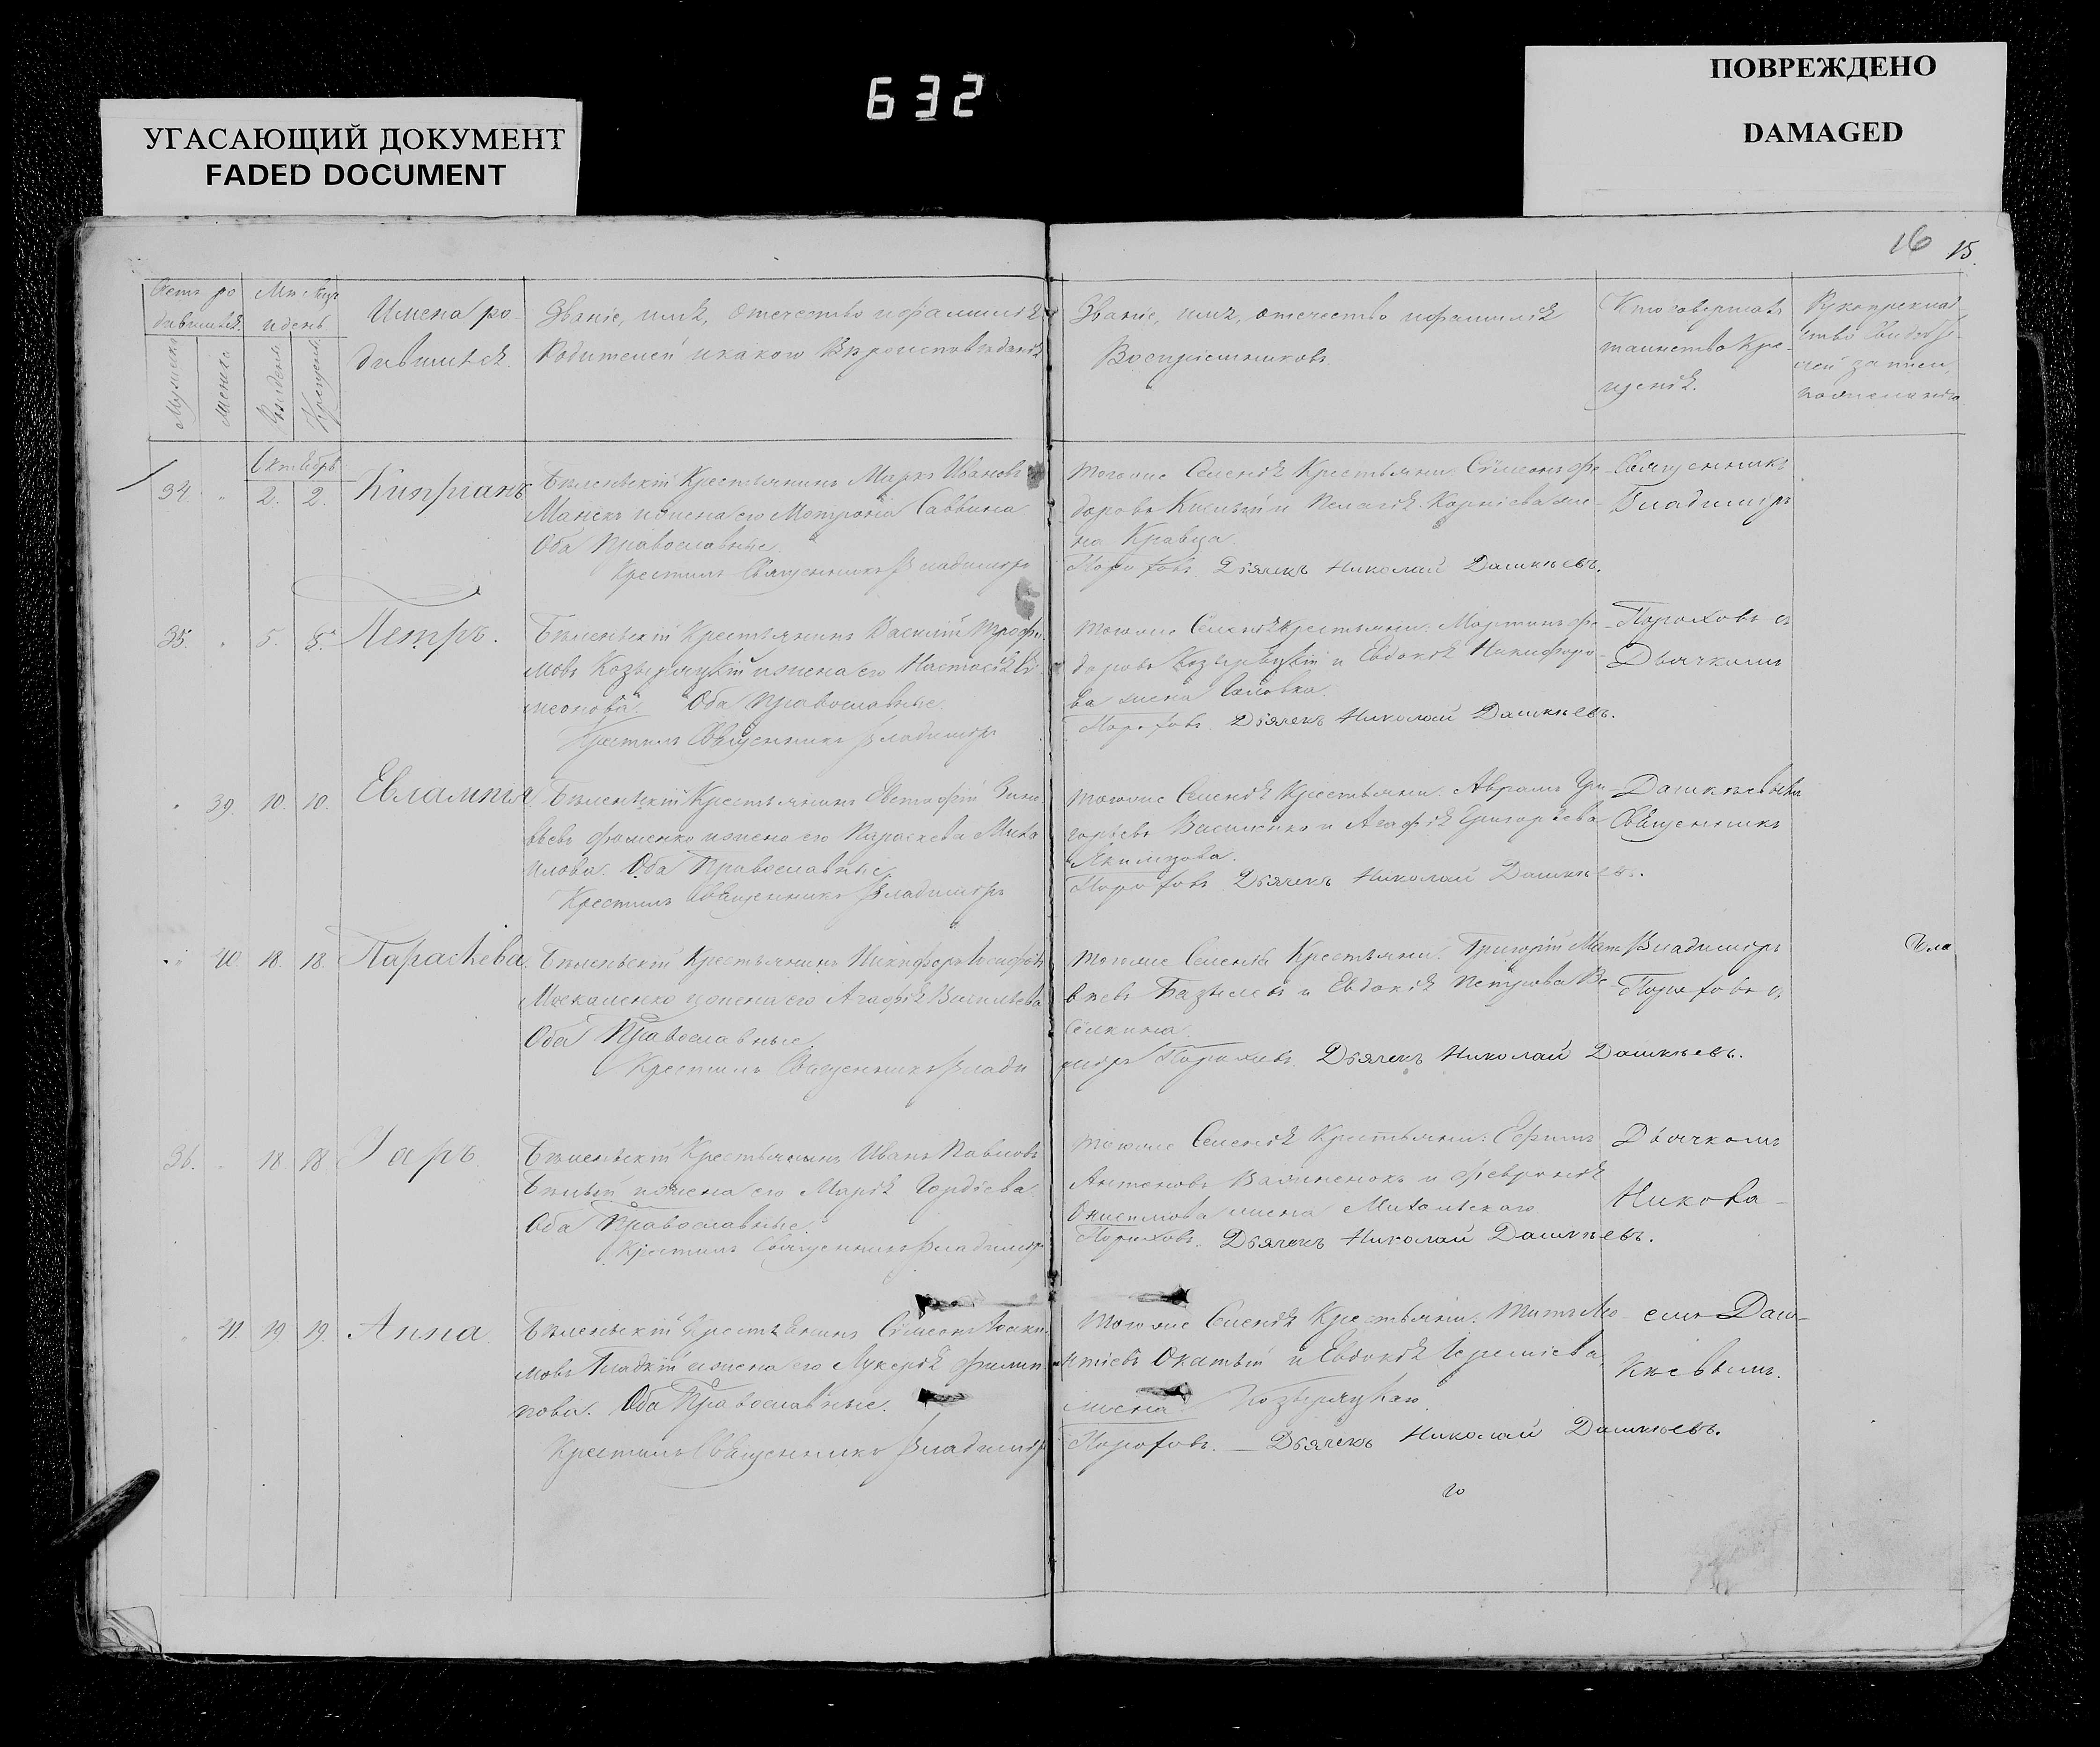 632
УГАСАЮЩИЙ ДОКУМЕНТ
FADED DOCUMENT
ПОВРЕЖДЕНО
DAMAGED
16 15.
Счетъ ро
дившихся.
Мѣсяцъ
и день
Имена ро-
дившихся.
Званіе, имя, отечество и фамилія
Родителей и какого вѣроисповѣданія
Званіе, имя, отечество и фамилія
Воспріемниковъ
Кто совершалъ
таинство Кре-
щенія.
Рукоприклад
ство Свидѣте-
лей
Мужеска
Женска
Рожденія
Крещенія
Октябрь
34 " 2. 2. Кипріанъ
Бѣленьскій Крестьянинъ Маркъ Ивановъ
и жена его Мотрона Саввина
Оба Православные
Крестилъ Священникъ Владиміръ
тогоже Селенія Крестьяни: Сѵмеонъ Ѳе-
доровъ и Пелагія Корніева же-
на Кравца.
Пороховъ. Дьячекъ Николай Дашкѣевъ.
Священникъ
Владиміръ
35. " 5. 5. Петръ.
Бѣленьскій Крестьянинъ Василій Трофи-
мовъ Козыряцкій и жена его Настасія Си-
меонова. Оба Православные.
Крестилъ Священникъ Владиміръ
тогоже Селенія Крестьяни: Мартинъ Ѳе-
доровъ и Евдокія Никифоро-
ва жена
Пороховъ. Дьячекъ Николай Дашкѣевъ.
Пороховъ съ
Дьячкомъ
" 39 10. 10. Евлампія
Бѣленьскій Крестьянинъ Евстафій Зино-
вьевъ Фоменко и жена его Параскева Миха
илова. Оба Православные
Крестилъ Священникъ Владиміръ
тогоже Селенія Крестьяни: Аврамъ Гри-
горьевъ Василенко и Агафія Григорьева
Пороховъ. Дьячекъ Николай Дашкѣевъ.
Дашкѣевымъ
Священникъ
" 40 18. 18. Параскева
Бѣленьскій Крестьянинъ Никифоръ Іосифовъ
Москаленко и жена его Агафія Васильева
Оба Православные.
Крестилъ Священникъ Влади
тогоже Селенія Крестьяни: Григорій Мат-
вѣевъ и Евдокія Петрова
міръ Пороховъ. Дьячекъ Николай Дашкѣевъ.
Владиміръ
Пороховъ съ
36. " 18. 18
Бѣленьскій Крестьянинъ Иванъ Павловъ
Бѣлый и жена его Марія Гордіева.
Оба Православные.
Крестилъ Священникъ Владиміръ
тогоже Селенія Крестьяни: Ефимъ
Антоновъ и Февронія
Онисимова жена
Пороховъ. Дьячекъ Николай Дашкѣевъ.
Дьячкомъ
Никола-
" 41. 19 19. Анна
Бѣленьскій Крестьянинъ Сѵмеонъ Іоаки-
мовъ Гладкій и жена его Лукерія Филип-
пова. Оба Православные.
Крестилъ Священникъ Владиміръ
тогоже Селенія Крестьяни: Титъ
и Евдокія
жена Козыряцкаго.
Пороховъ. — Дьячекъ Николай Дашкѣевъ.
емъ Даш-
кѣевымъ.